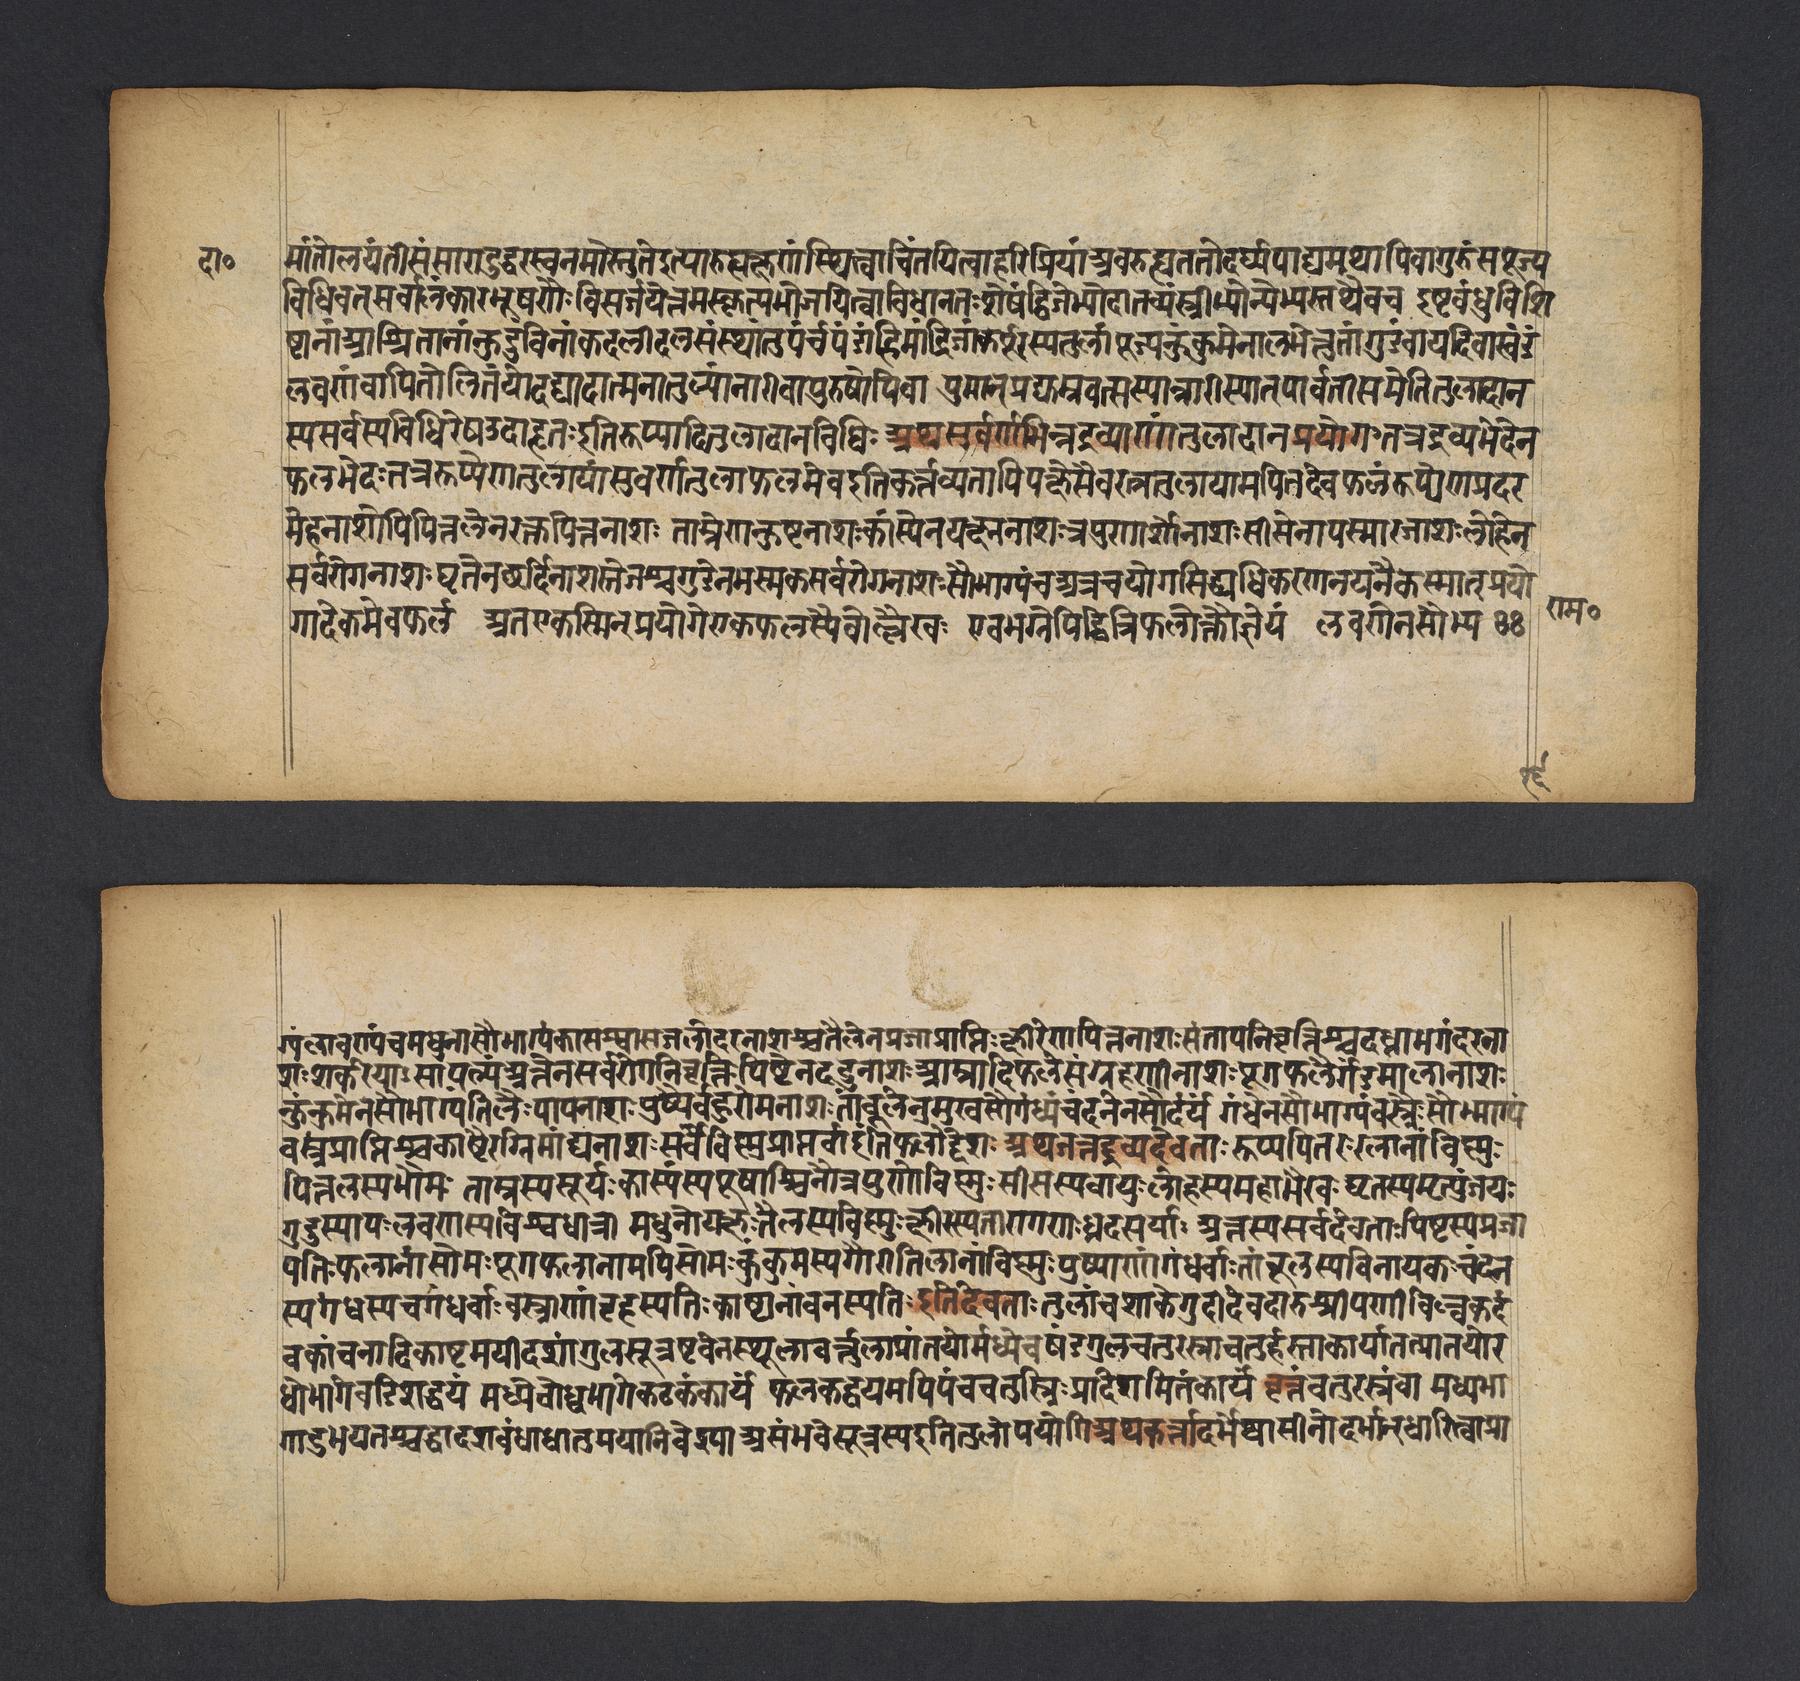 दा०
मांतोलयंतीसंसारादुद्धरस्वनमोस्तुतेइत्यारुह्यक्षणंस्थित्वाचिंतयित्वाहरिप्रियांअवरुह्यततोदर्घ्यपाद्यमथापिवागुरुंसंपूज्य
विधिवत्सर्वालंकारभूषणैः विसर्जयेन्नमस्कृत्यभोजयित्वाविधानतःशेषंद्विजेभ्योदातव्यंस्त्रीभ्योन्येभ्यस्तथैवच इष्टबंधुविशि
ष्टानांआश्रितानांकुटुंबिनांकदलीदलसंस्थांतु कर्पूरस्यतुलांपूज्यकुंकुमेनालभेत्तुतांगुडंवायदिवाखंडं
लवणंवापितोलितंयोदद्यादात्मनातुल्यांनारीवापुरुषोपिवा पुमान्प्रद्युम्नवत्सस्यान्नारीस्यात्पार्वतीसमेतितुलादान
स्यसर्वस्यविधिरेषउदाहृतःइतिरुप्यादितुलादानविधिः अथसुवर्णभिन्नद्रव्याणांतुलादानप्रयोगःतत्रद्रव्यभेदेन
फलभेदःतत्ररुप्येणतुलायांसुवर्णतुलाफलमेवइतिकर्त्तव्यतापिपक्षेसैवरत्नतुलायामपितदेवफलंरुप्येणप्रदर
मेहनाशोपिपित्तलेनरक्तपित्तनाशः ताम्रेणकुष्टनाशःकांस्येनयक्ष्मनाशःत्रपुणार्शोनाशःसीसेनापस्मारनाशःलोहेन
सर्वरोगनाशःघृतेनछर्दिनाशस्तेजश्चगुडेनभस्मकसर्वरोगनाशःसौभाग्यंचअत्रचयोगसिद्ध्यधिकरणनयेनैकस्मात्प्रयो
गादेकमेवफलं अतएकस्मिन्प्रयोगेएकफलस्यैवोल्लेखः एवमग्रेपिद्वित्रिफलोक्तौज्ञेयं लवणेनसौभ्य ४४
राम०
ग्यंलावण्यंचमधुनासौभाग्यंकासश्वासजलोदरनाशश्चतैलेनप्रजाप्राप्तिःक्षीरेणपित्तनाशःसंतापनिवृत्तिश्चदध्नाभगंदरना
शःशर्करयाःसापत्न्यंअन्नेनसर्वरोगनिवृत्तिःपिष्टेनदद्रुनाशःआम्रादिफलैःसंग्रहणीनाशःपूगफलैर्गंडमालानाशः
कुंकुमेनसौभाग्यतिलैःपापनाशःपुष्पैर्बहुरोमनाशःतांबूलेनमुखसौगंध्यंचंदनेनसौंदर्यं गंधेनसौभाग्यंवस्त्रैःसौभाग्यं
वस्त्रप्राप्तिश्चकाष्टैरग्निमांद्यनाशःसर्वैर्विष्णुप्राप्तर्वाइतिफलोद्देशः अथतत्तद्द्रव्यदेवताःरुप्यपितरःरत्नानांविष्णुः
पित्तलस्यभौमः ताम्रस्यसूर्यःकांस्यस्यपूषाश्विनौत्रपुणोविष्णुःसीसस्यवायुःलोहस्यमहाभैरवःघृतस्यमृत्युंजयः
गुडस्यापःलवणस्यविश्वधात्री मधुनोयक्षःतैलस्यविष्णुःक्षीरस्यतारागणाःदध्नःसर्पाः अन्नस्यसर्वदेवताःपिष्टस्यप्रजा
पतिःफलानांसोमःपूगफलानामपिसोमःकुंकुमस्यगौरीतिलानांविष्णुःपुष्पाणांगंधर्वाःतांबूलस्यविनायकःचंदन
स्यगंधस्यचगंधर्वाःवस्त्राणांबृहस्पतिःकाष्टानांवनस्पतिःइतिदेवताःतुलांचशाकेंगुदीदेवदारुश्रीपर्णीबिल्वकदं
बकांचनादिकाष्टमयींदशांगुलसूत्रवेष्टनेनस्थूलावर्त्तुलाप्रांतयोर्मध्येचषडंगुलचतुरस्राचतुर्हस्ताकार्यातत्प्रांतयोर
धोभागेबडिशद्वयं मध्येचोर्ध्वभागेकटकंकार्यं फलकद्वयमपिपंचचतुस्त्रिःप्रादेशमितंकार्यं वृत्तंचतुरस्रंवा मध्यभा
गादुभयतश्चद्वादशबंधाधातुमयानिवेश्या असंभवेसूत्रस्यइतितुलोपयोगिअथकर्त्तादर्भेष्वासीनोदर्भान्धारित्वाप्रा